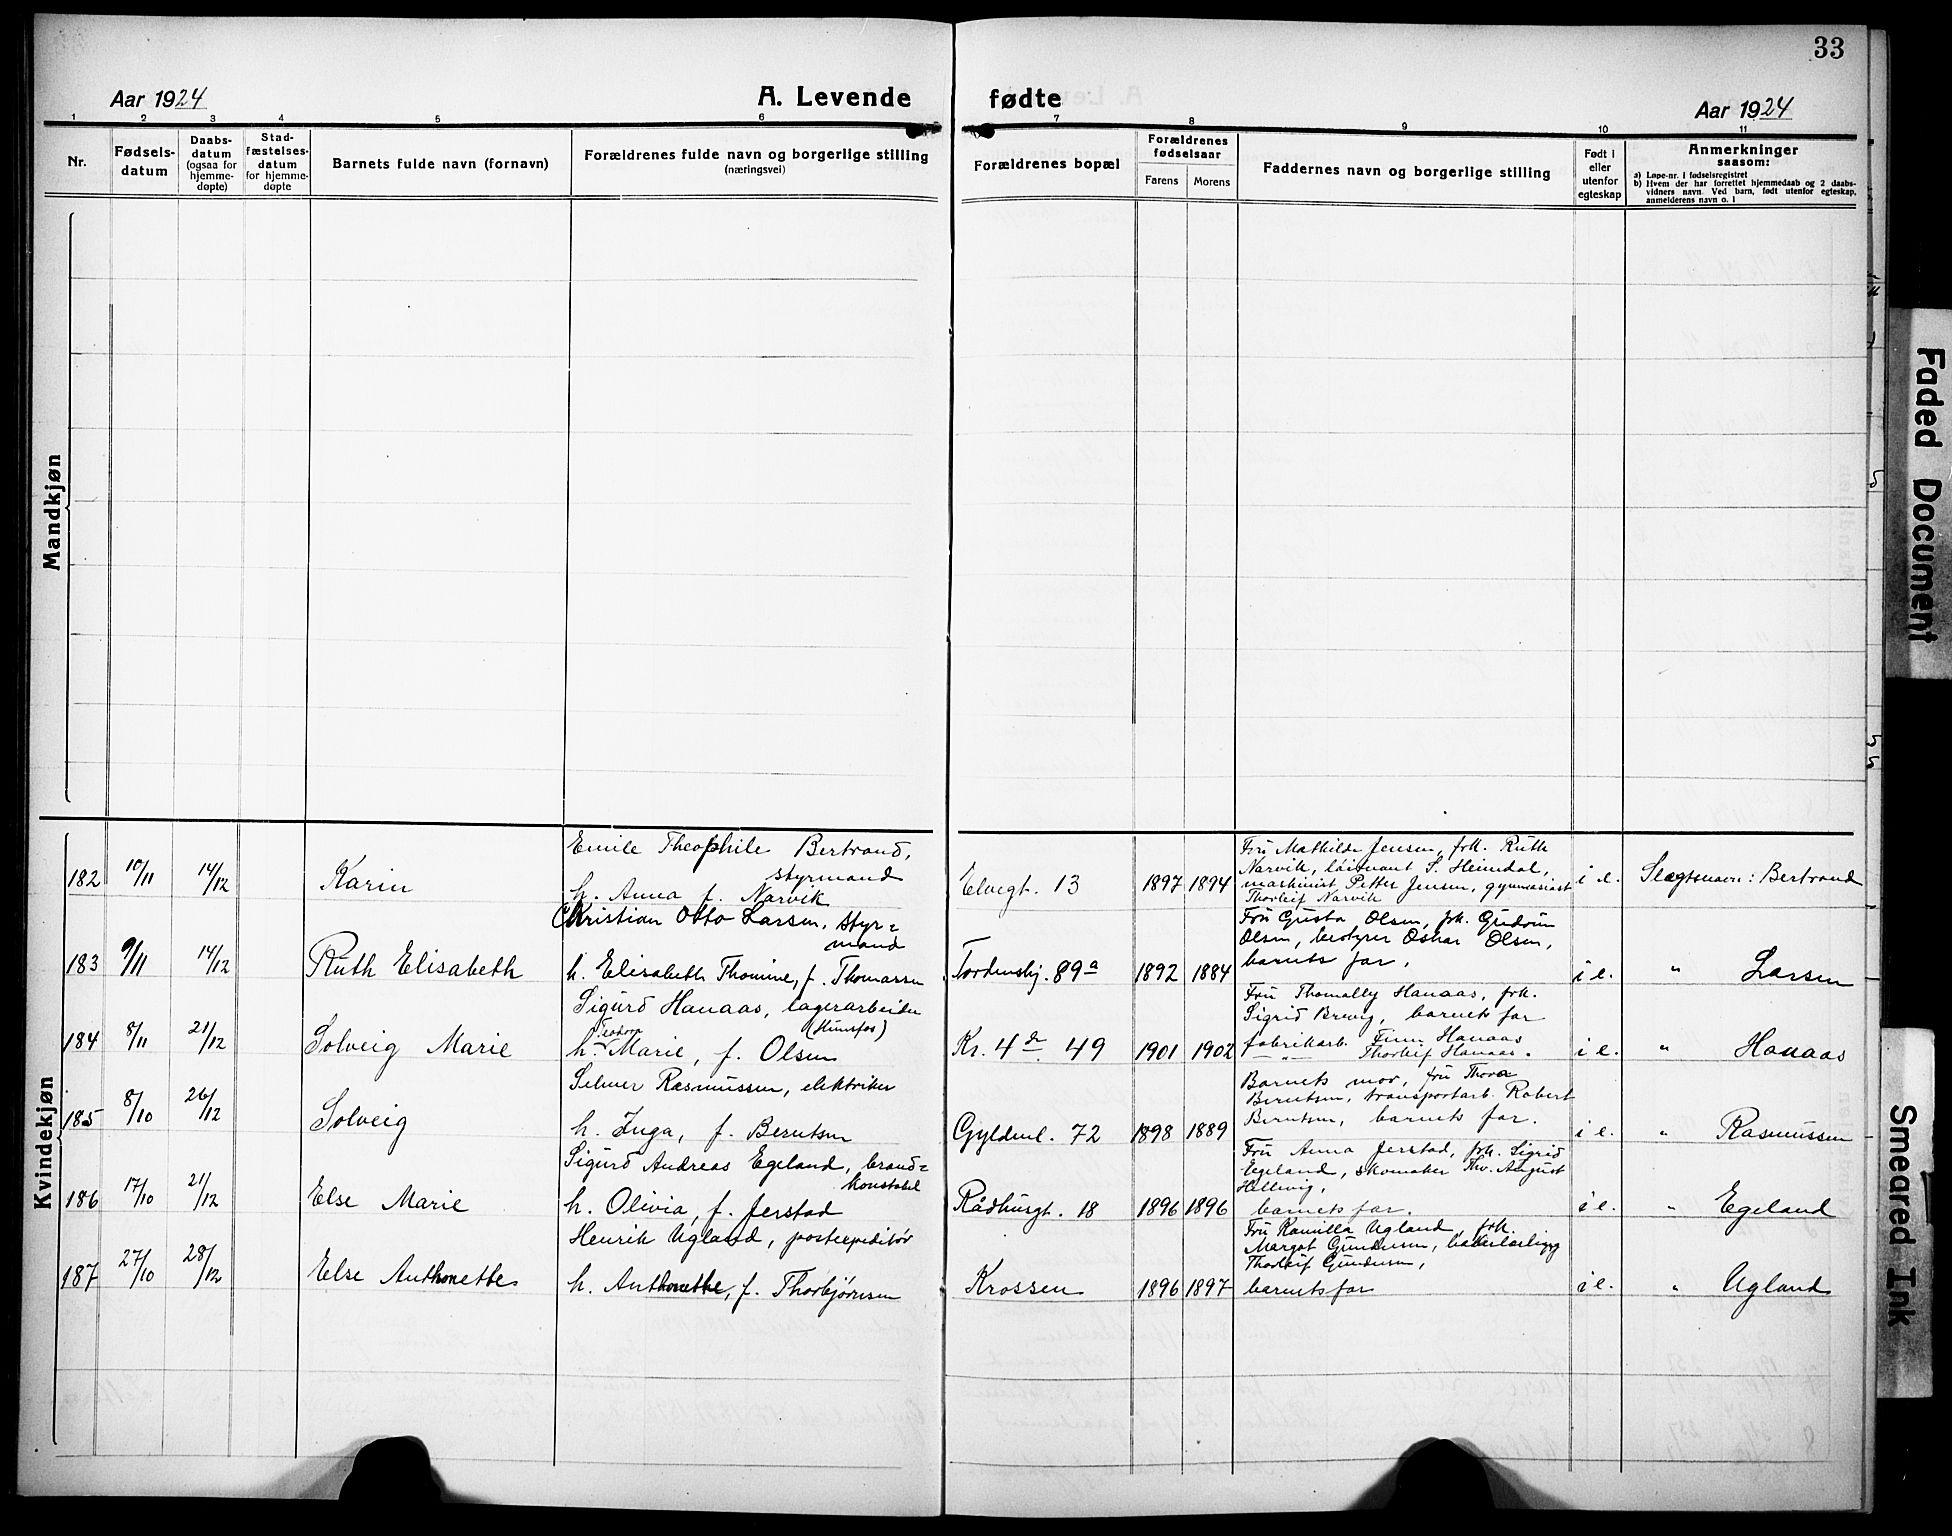 33
Aar 1924
A. Levende fødte
Aar 1924
1 2 3 4 5 6 7 8 9 10 11
Nr.
Fødsels-
datum
Daabs-
datum
(ogsaa for
hjemme-
døpte)
Stad-
fæstelses-
datum
for hjemme-
døpte
Barnets fulde navn (fornavn)
Forældrenes fulde navn og borgerlige stilling
(næringsvei)
Forældrenes bopæl
Forældrenes
fødselsaar
Farens Morens
Faddernes navn og borgerlige stilling
Født i
eller
utenfor
egteskap
Anmerkninger
saasom:
a) Løpe-nr. i fødselsregistret
b) Hvem der har forrettet hjemmedaab og 2 daabs-
vidners navn. Ved barn, født utenfor egteskap,
anmelderens navn o. l
Mandkjøn
Kvindekjøn
182 10/11 14/12 Karin
Emile Theophile Bertrand,
styrmand
h. Anna f. Narvik
Elvegt. 13 1897 1894
Fru Mathilde Jensen, frk. Ruth
Narvik, løitnant S. Heimdal,
maskinist Petter Jensen, gymnasiast
Thorleif Narvik
i e. Slegtsnavn: Bertrand
183 9/11 14/12 Ruth Elisabeth
Christian Otto Larsen, styr=
mand
h. Elisabeth Thomine, f. Thomassen
Tordenskj. 89a 1892 1884
Fru Gusta Olsen, frk. Gudrun
Olsen, bestyrer Oskar Olsen,
barnets far.
i e. " Larsen
184 8/11 21/12 Solveig Marie
Sigurd Hanaas, lagerarbeider
(Hunsfos)
h. Marie, f. Olsen
Kr. 4de 49 1901 1902
Fru Thomally Hanaas, frk.
Sigrid Brevig, barnets far
fabrikarb. Finn Hanaas
— " — Thorleif Hanaas.
i e. " Hanaas
185 8/10 26/12 Solveig
Selmer Rasmussen, elektriker
h. Inga, f. Berntsen
Gyldenl. 72 1898 1889
Barnets mor, fru Thora
Berntsen, transportarb. Robert
Berntsen, barnets far.
i e. " Rasmussen
186 17/10 21/12 Else Marie
Sigurd Andreas Egeland, brand=
konstabel
h. Olivia, f. Jerstad
Rådhusgt. 18 1896 1896
Fru Anna Jerstad, frk. Sigrid
Egeland, skomaker Thv. August
Hellevig,
barnets far.
i e. " Egeland
187 27/10 28/12 Else Anthonette
Henrik Ugland, postexpeditør
h. Anthonette, f. Thorbjørnsen
Krossen 1896 1897
Fru Kamilla Ugland, frk.
Margot Gundersen,
Thorleif Gundersen,
barnets far
i e. " Ugland
Faded Document
Smeared Ink